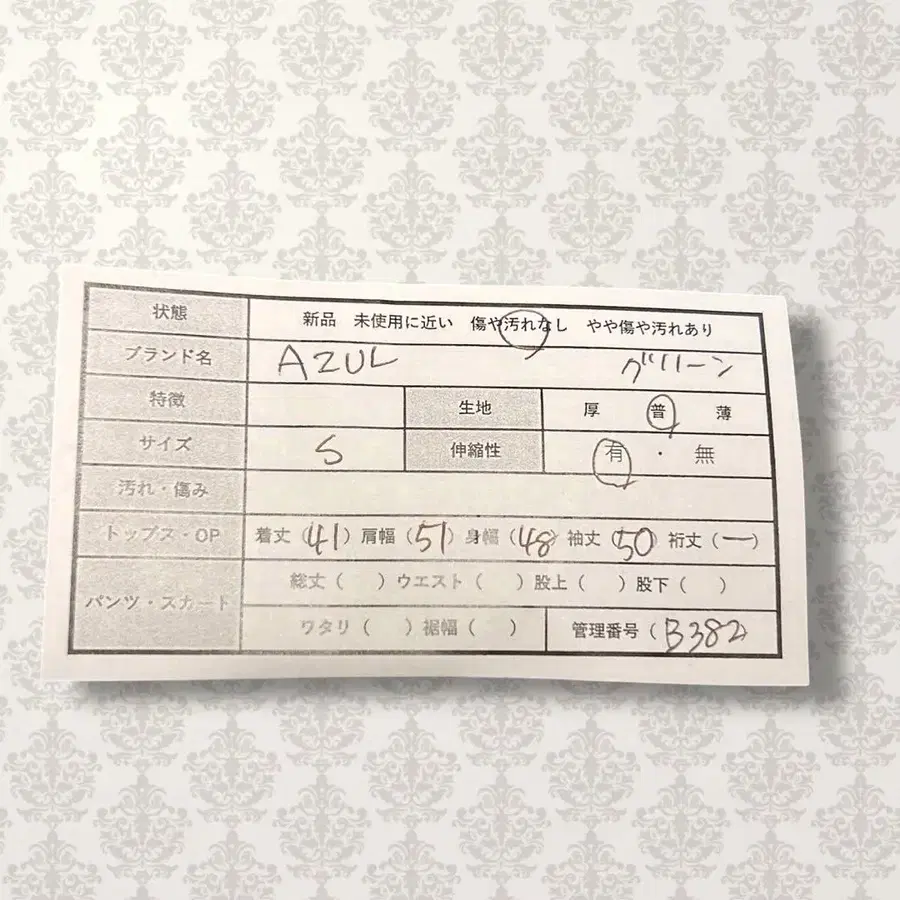 状態 新品 未使用に近い 傷や汚れなし やや傷や汚れあり
ブランド名 AZUL グリーン
特徴 生地 厚 普 薄
サイズ S 伸縮性 有・無
汚れ・傷み
トップス・OP 着丈（41）肩幅（51）身幅（48）袖丈（50）裄丈（ー）
パンツ・スカート 総丈（ ）ウエスト（ ）股上（ ）股下（ ）
ワタリ（ ）裾幅（ ） 管理番号（B382）